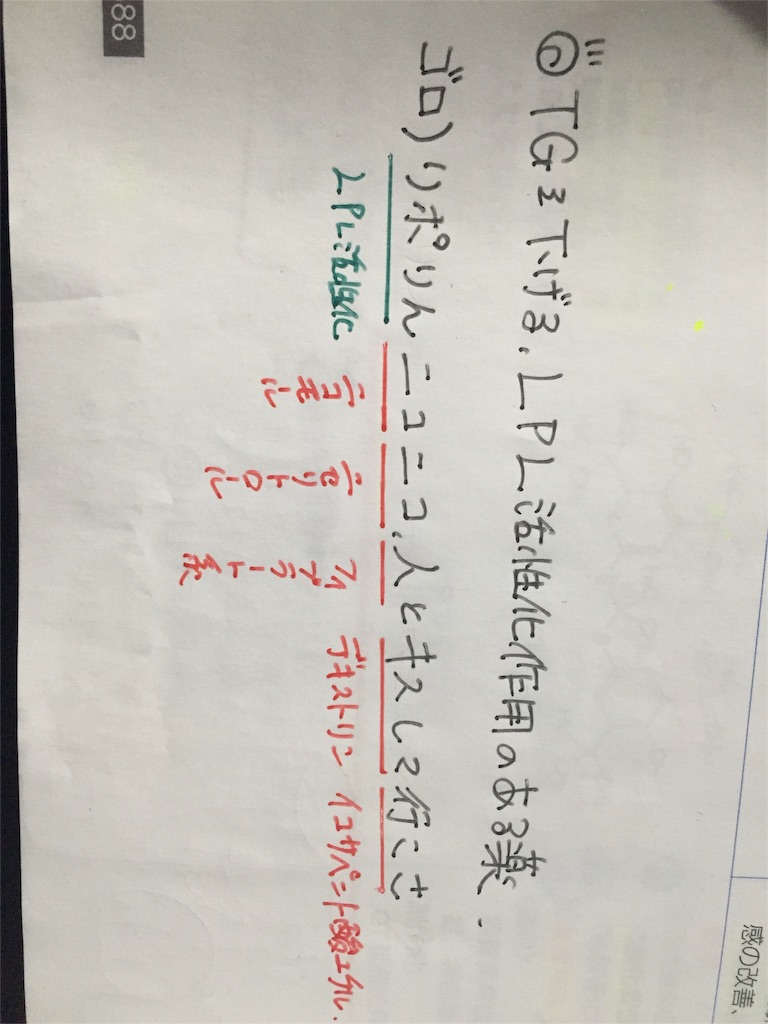 TGを下げる、LPL活性化作用のある薬.
ゴロ)リポりんニコニコ、人とキスして行こさ
LPL活性化
ニコモール
ニセリトロール
フィブラート系
デキストリン
イコサペント酸エチル.
88
感の改善、